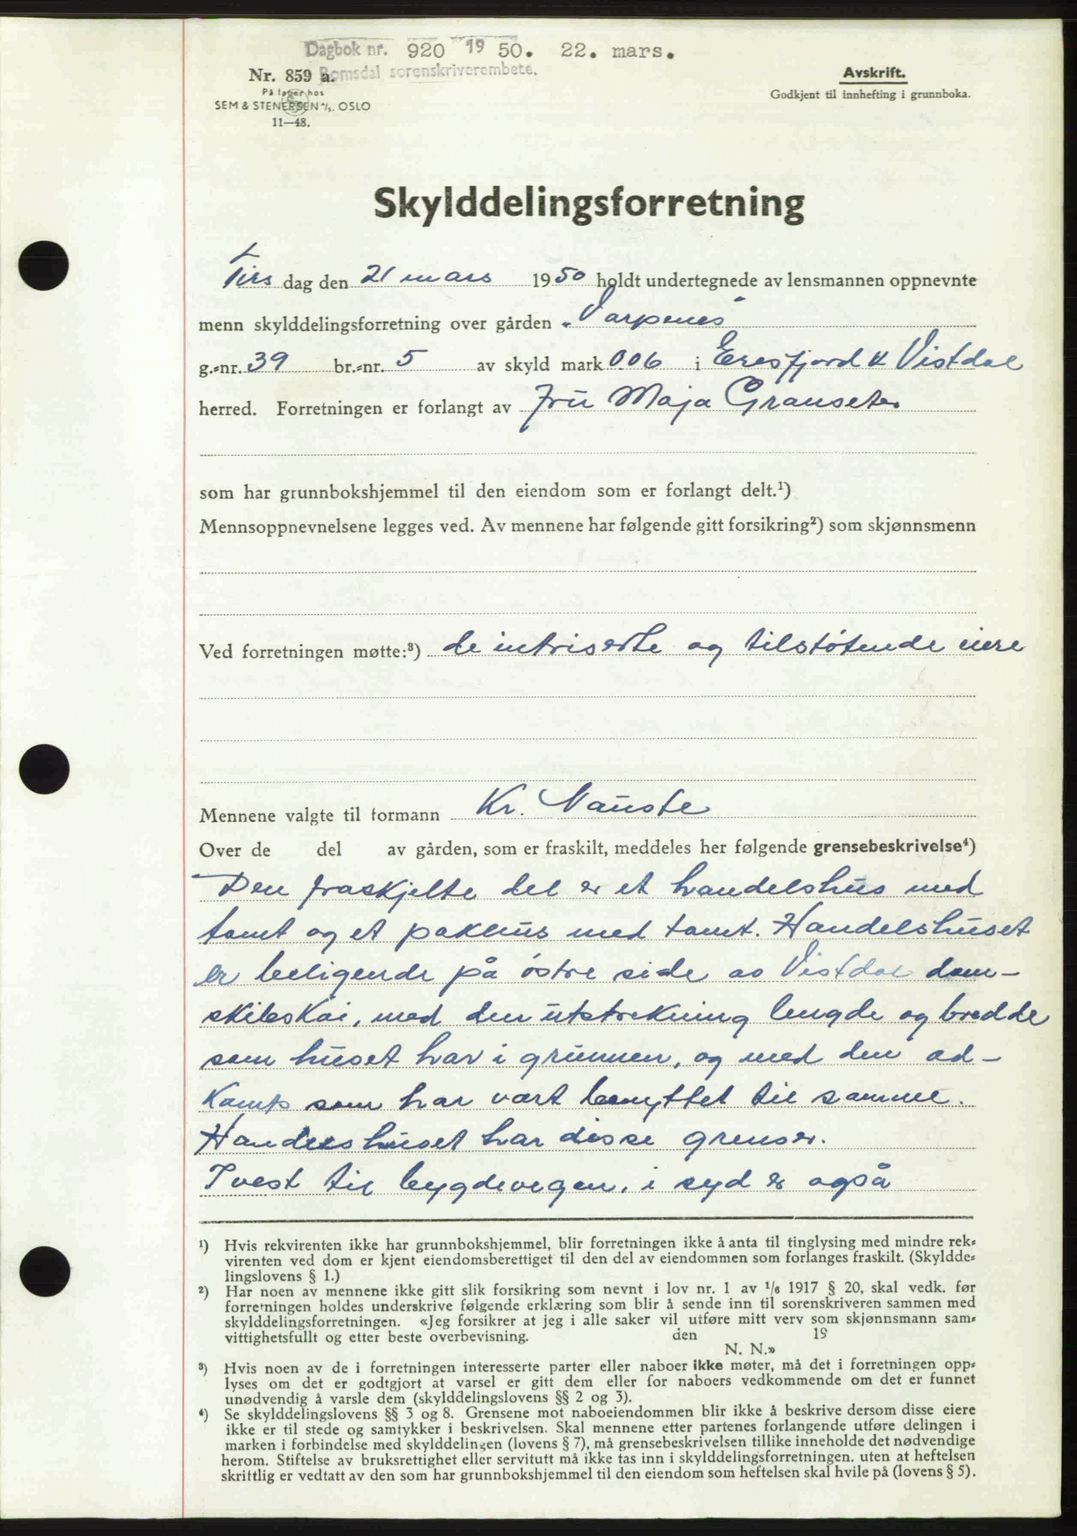 Dagbok nr. 920 1950. 22. mars.
Romsdal sorenskriverembete.
Nr. 859 a.
På lager hos
SEM & STENERSEN A/S. OSLO
11—48.
Avskrift.
Godkjent til innhefting i grunnboka.
Skylddelingsforretning
Tirs dag den 21 mars 1950 holdt undertegnede av lensmannen oppnevnte
menn skylddelingsforretning over gården „Varpenes"
g.-nr. 39 br.-nr. 5 av skyld mark 0.06 i Eresfjord & Vistdal
herred. Forretningen er forlangt av Fru Maja Granseter
som har grunnbokshjemmel til den eiendom som er forlangt delt.¹)
Mennsoppnevnelsene legges ved. Av mennene har følgende gitt forsikring²) som skjønnsmenn
Ved forretningen møtte:³) de intriserte og tilstøtende eiere
Mennene valgte til formann Kr. Nauste
Over de del av gården, som er fraskilt, meddeles her følgende grensebeskrivelse⁴)
Den fraskjelte del er et handelshus med
tomt og et pakhus med tomt. Handelshuset
er beligende på østre side av Vistdal dam-
skibskai, med den utstrekning lengde og bredde
som huset har i grunnen, og med den ad-
komst som har vært benyttet til samme.
Handelshuset har disse grenser.
I vest til bygdevegen, i syd er også
¹) Hvis rekvirenten ikke har grunnbokshjemmel, blir forretningen ikke å anta til tinglysing med mindre rek-
virenten ved dom er kjent eiendomsberettiget til den del av eiendommen som forlanges fraskilt. (Skyldde-
lingslovens § 1.)
²) Har noen av mennene ikke gitt slik forsikring som nevnt i lov nr. 1 av 1/6 1917 § 20, skal vedk. før
forretningen holdes underskrive følgende erklæring som blir å sende inn til sorenskriveren sammen med
skylddelingsforretningen. «Jeg forsikrer at jeg i alle saker vil utføre mitt verv som skjønnsmann sam-
vittighetsfullt og etter beste overbevisning. den 19
N. N.»
³) Hvis noen av de i forretningen interesserte parter eller naboer ikke møter, må det i forretningen opp-
lyses om det er godtgjort at varsel er gitt dem eller for naboers vedkommende om det er funnet
unødvendig å varsle dem (skylddelingslovens §§ 2 og 3).
⁴) Se skylddelingslovens §§ 3 og 8. Grensene mot naboeiendommen blir ikke å beskrive dersom disse eiere
ikke er til stede og samtykker i beskrivelsen. Skal mennene etter partenes forlangende utføre delingen i
marken i forbindelse med skylddelingen (lovens § 7), må grensebeskrivelsen tillike inneholde det nødvendige
herom. Stiftelse av bruksrettighet eller servitutt må ikke tas inn i skylddelingsforretningen. uten at heftelsen
skriftlig er vedtatt av den som har grunnbokshjemmel til den eiendom som heftelsen skal hvile på (lovens § 5).